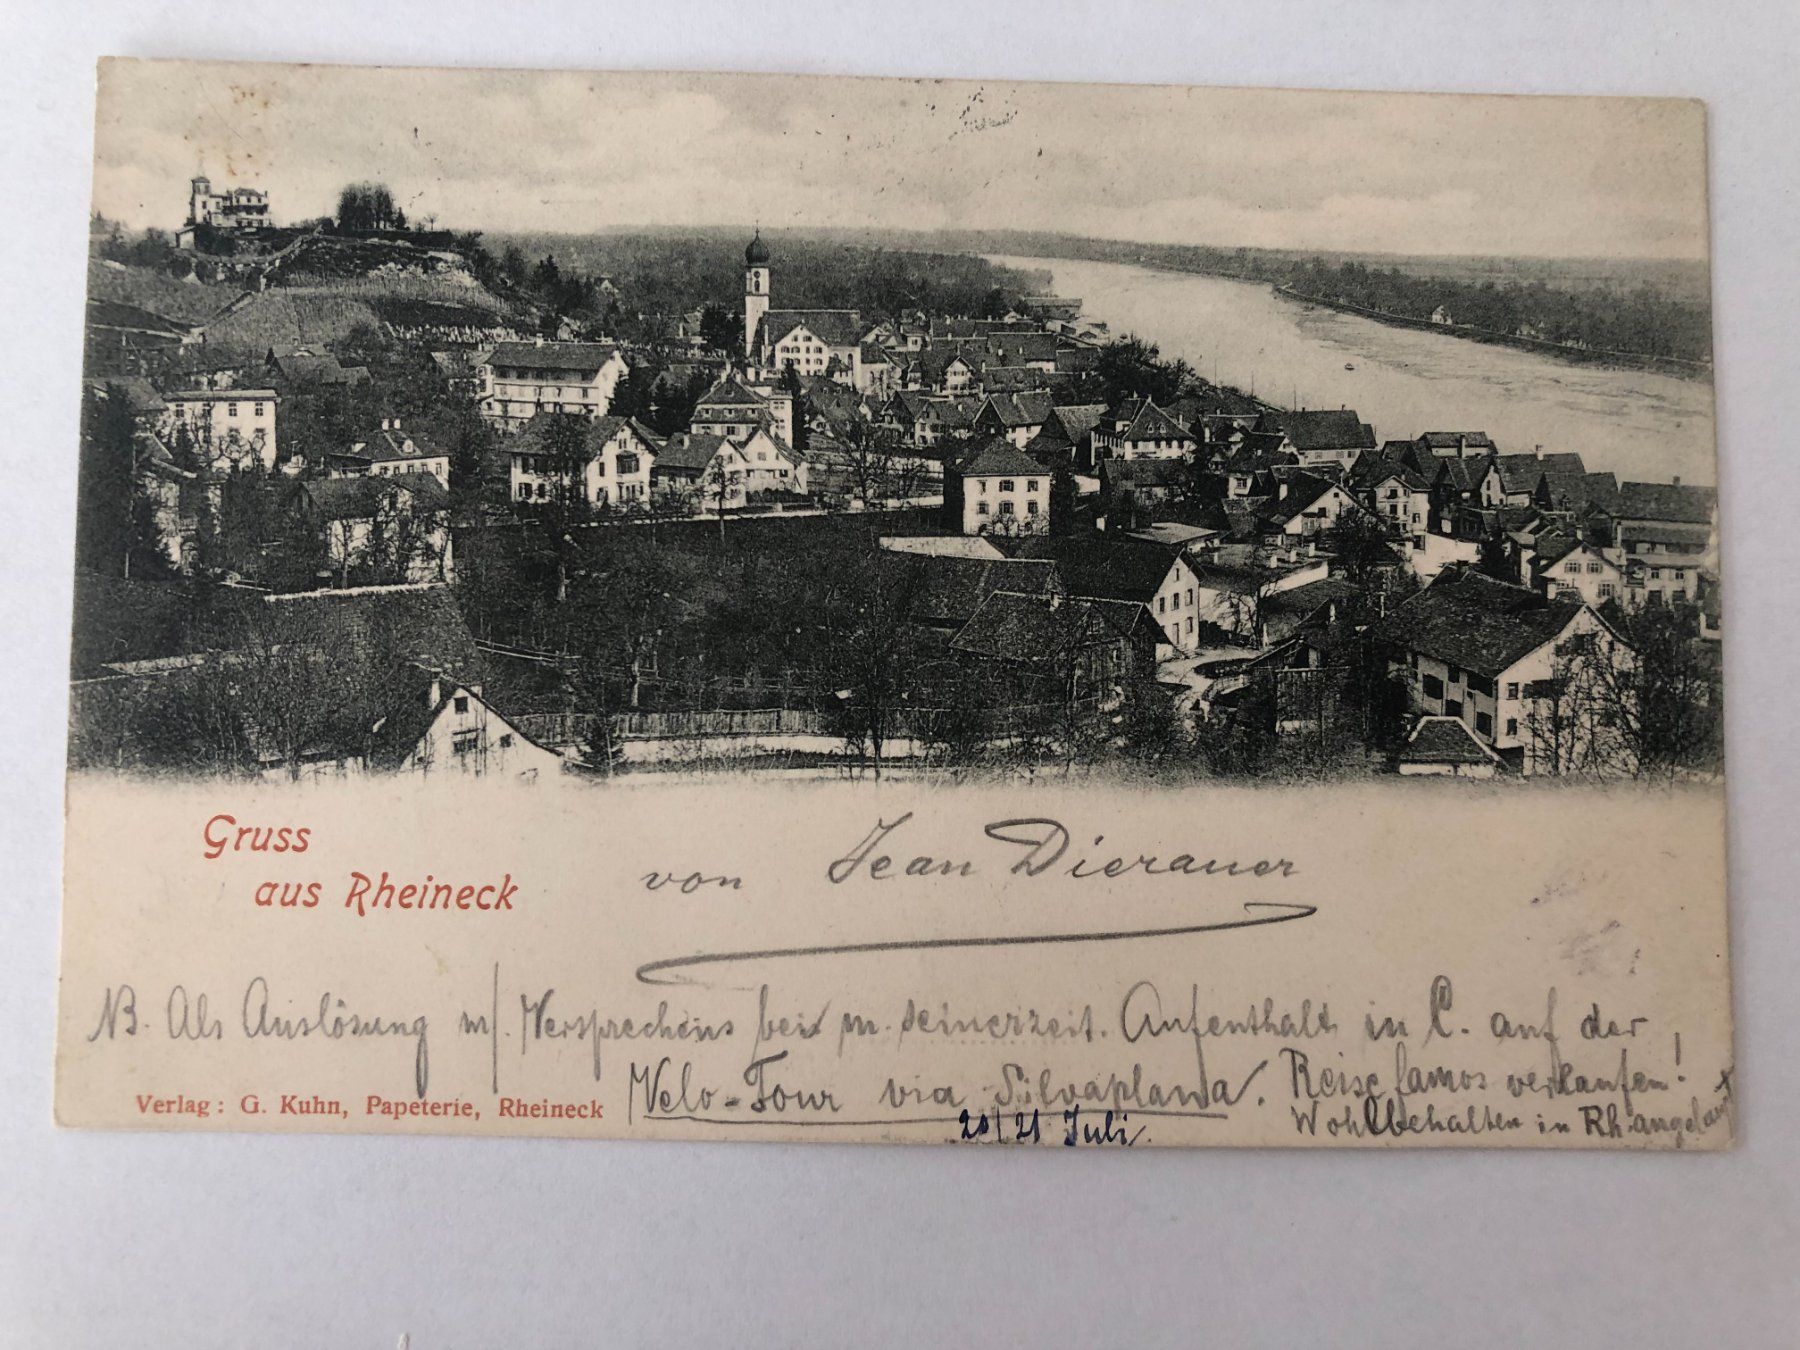 Gruss
aus Rheineck
von Jean Dierauer
NB. Als Auslösung m/. Versprechens bei m. seinerzeit. Aufenthalt in C. auf der
Velo-Tour via Silvaplana. Reise famos verlaufen!
20/21 Juli. Wohlbehalten in Rh. angelangt
Verlag: G. Kuhn, Papeterie, Rheineck